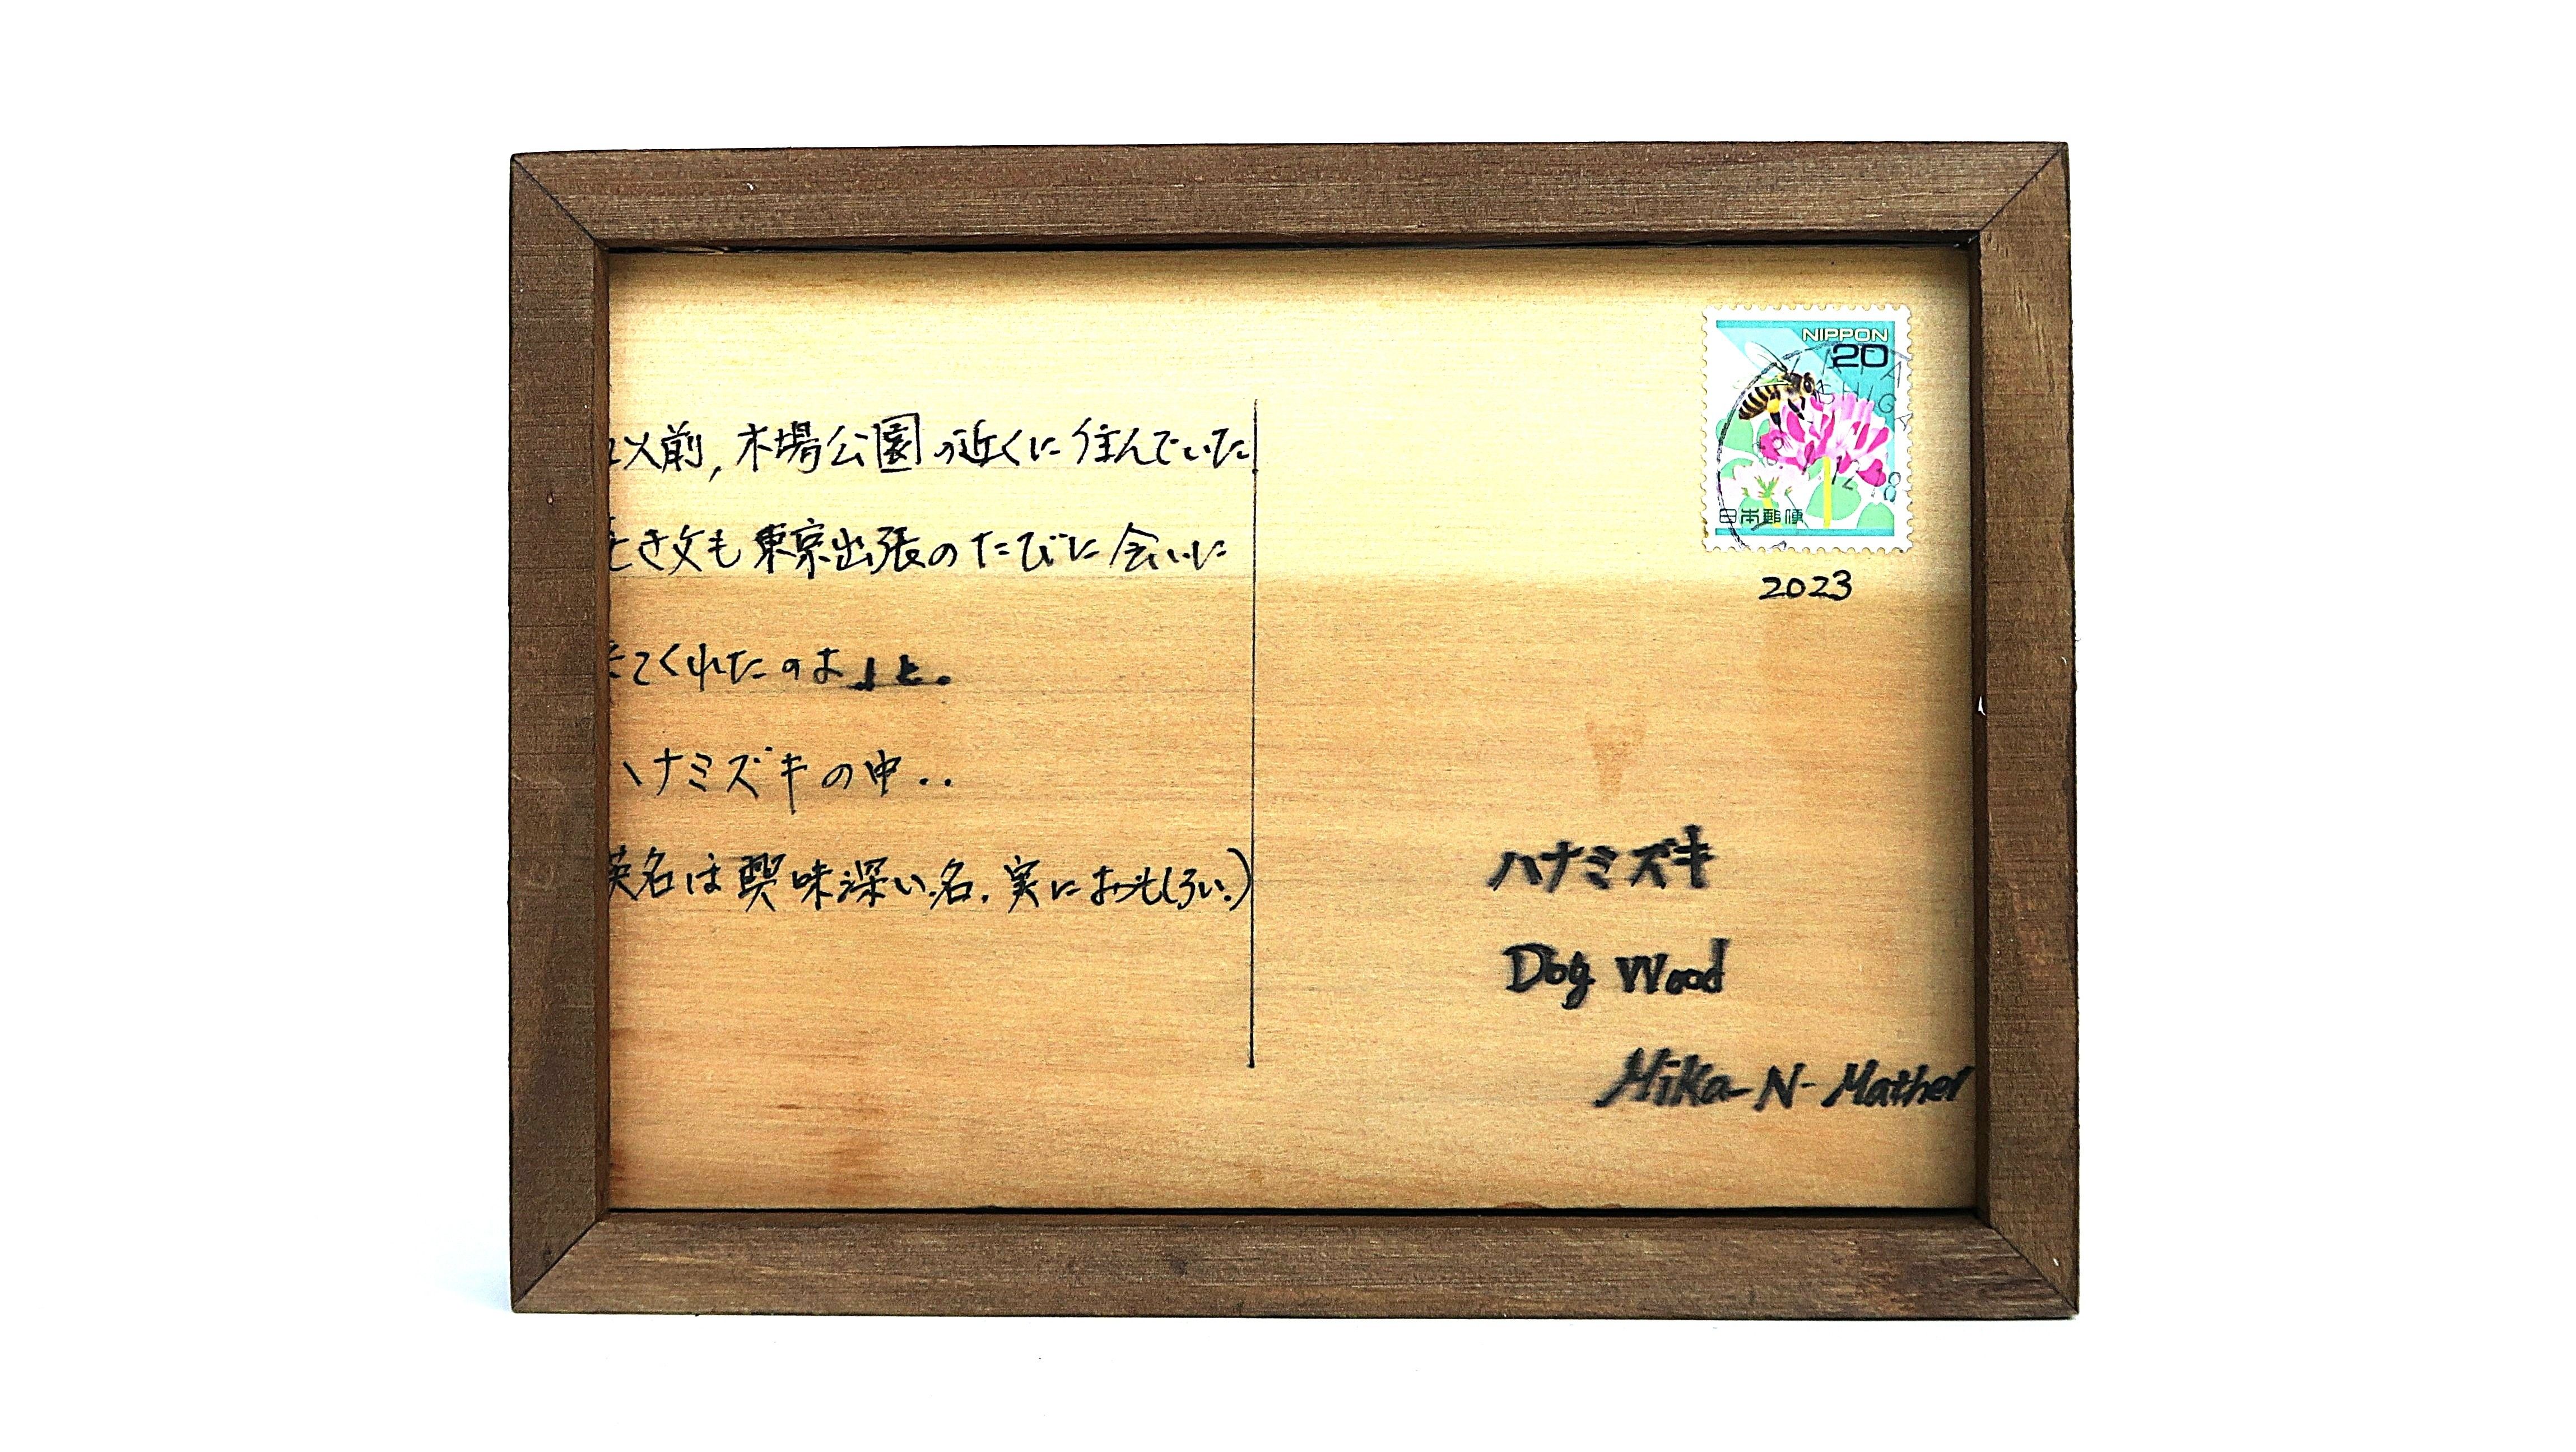 以前,木場公園の近くに住んでいた
亡き父も東京出張のたびに会いに
来てくれたのよ」と。
ハナミズキの中..
英名は興味深い名.実におもしろい.)
NIPPON
20
日本郵便
2023
ハナミズキ
Dog Wood
Mika-N-Mather